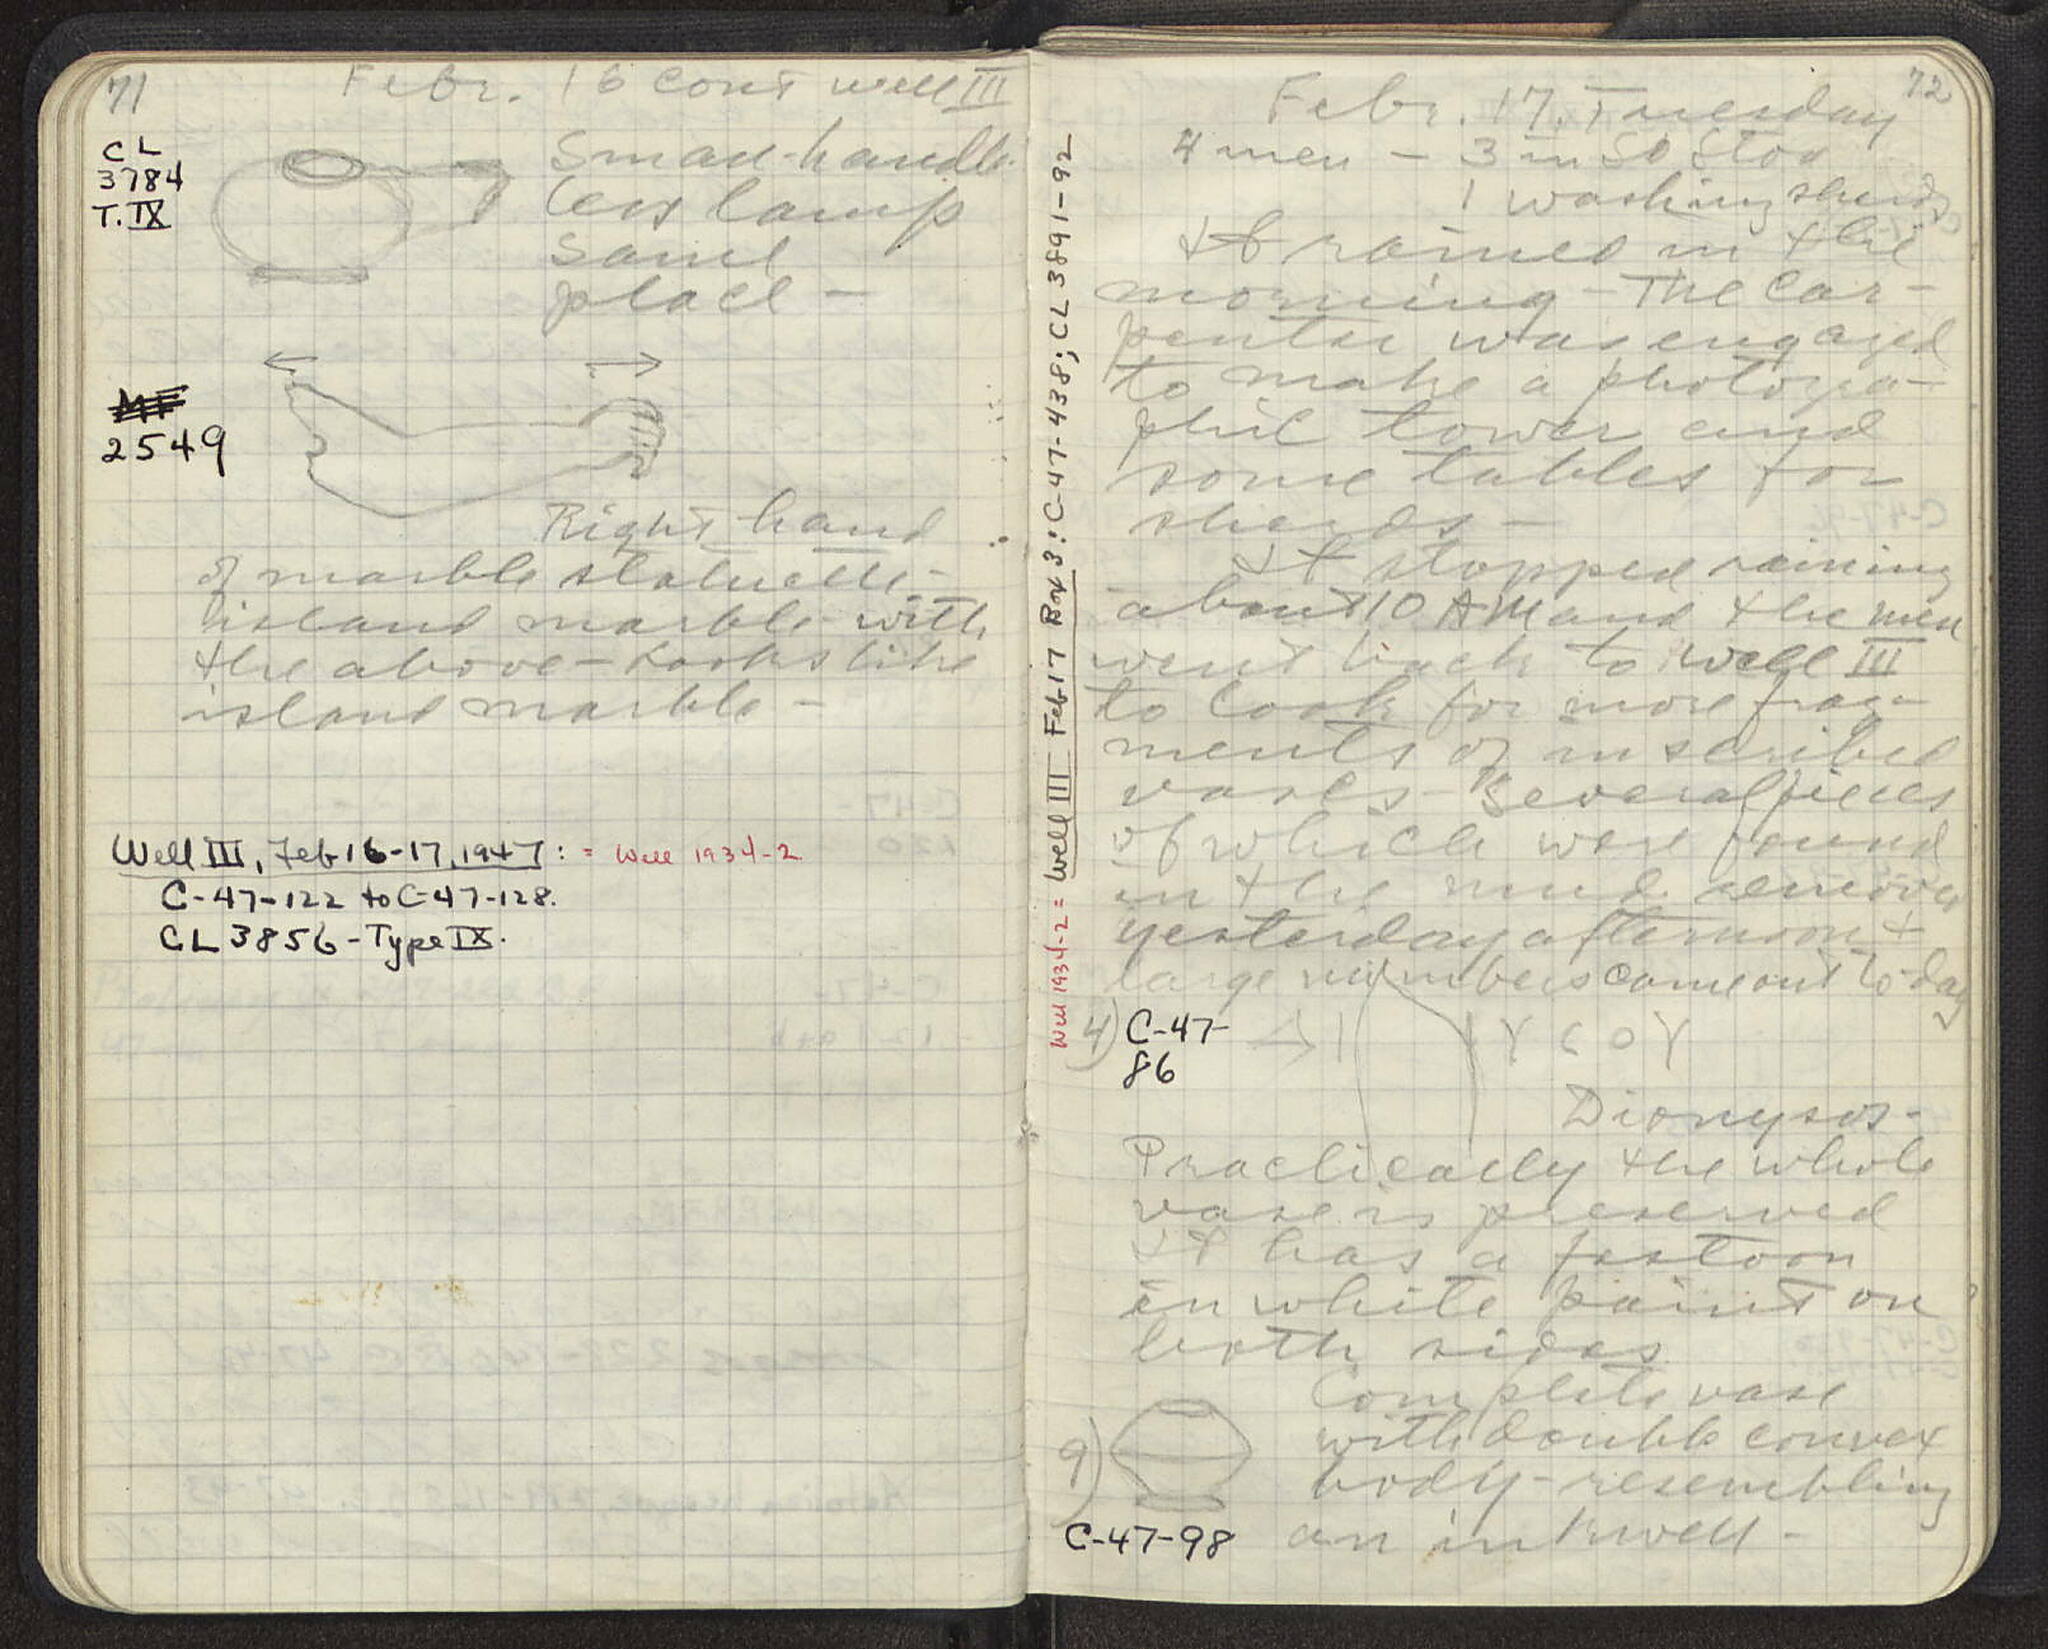 71
Febr. 16 cont well III
CL
3784
T. IX
Small handle
less lamp
same
place -
MF
2549
Right hand
of marble statuette -
island marble with
the above - looks like
island marble -
Well III, Feb 16-17, 1947: = Well 1934-2
C-47-122 to C-47-128.
CL 3856 - Type IX.
Well 1934-2 = Well III Feb 17 Box 3: C-47-438; CL 3891-92
72
Febr. 17. Tuesday
4 men - 3 in So Stoa
1 washing sherds
It rained in the
morning - The car-
penter was engaged
to make a photogra-
phic tower and
some tables for
sherds -
It stopped raining
about 10 AM and the men
went back to well III
to look for more frag-
ments of inscribed
vases - Several pieces
of which were found
in the mud removed
yesterday afternoon +
large numbers come out to-day
4) C-47-
86
ΔΙ ΥСΟΥ
Dionysos -
Practically the whole
vase is preserved
It has a festoon
in white paint on
both sides
9)
Complete vase
with double convex
body - resembling
an inkwell -
C-47-98